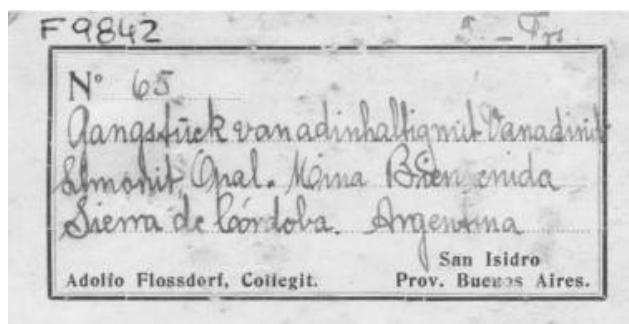 F 9842
N° 65
Gangstück vanadinhaltig mit Vanadinit
Limonit, Opal. Mina Bienvenida
Sierra de Córdoba. Argentina
San Isidro
Adolfo Flossdorf, Collegit. Prov. Buenos Aires.